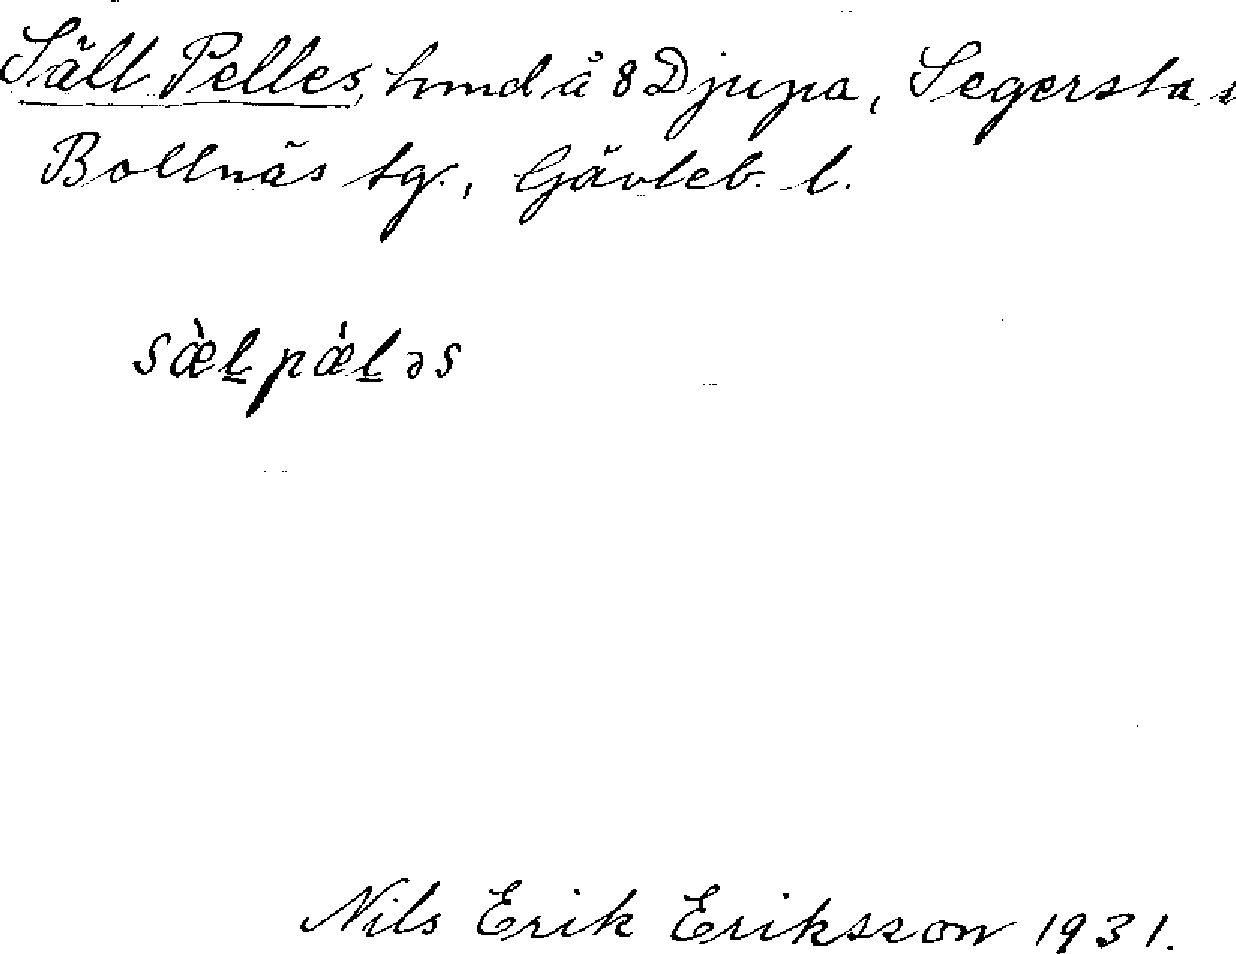 Säll Pelles, hmd å 8 Djupa, Segersta s
Bollnäs tg., Gävleb. l.
sæ̀l̠pǽl̠əs
Nils Erik Eriksson 1931.